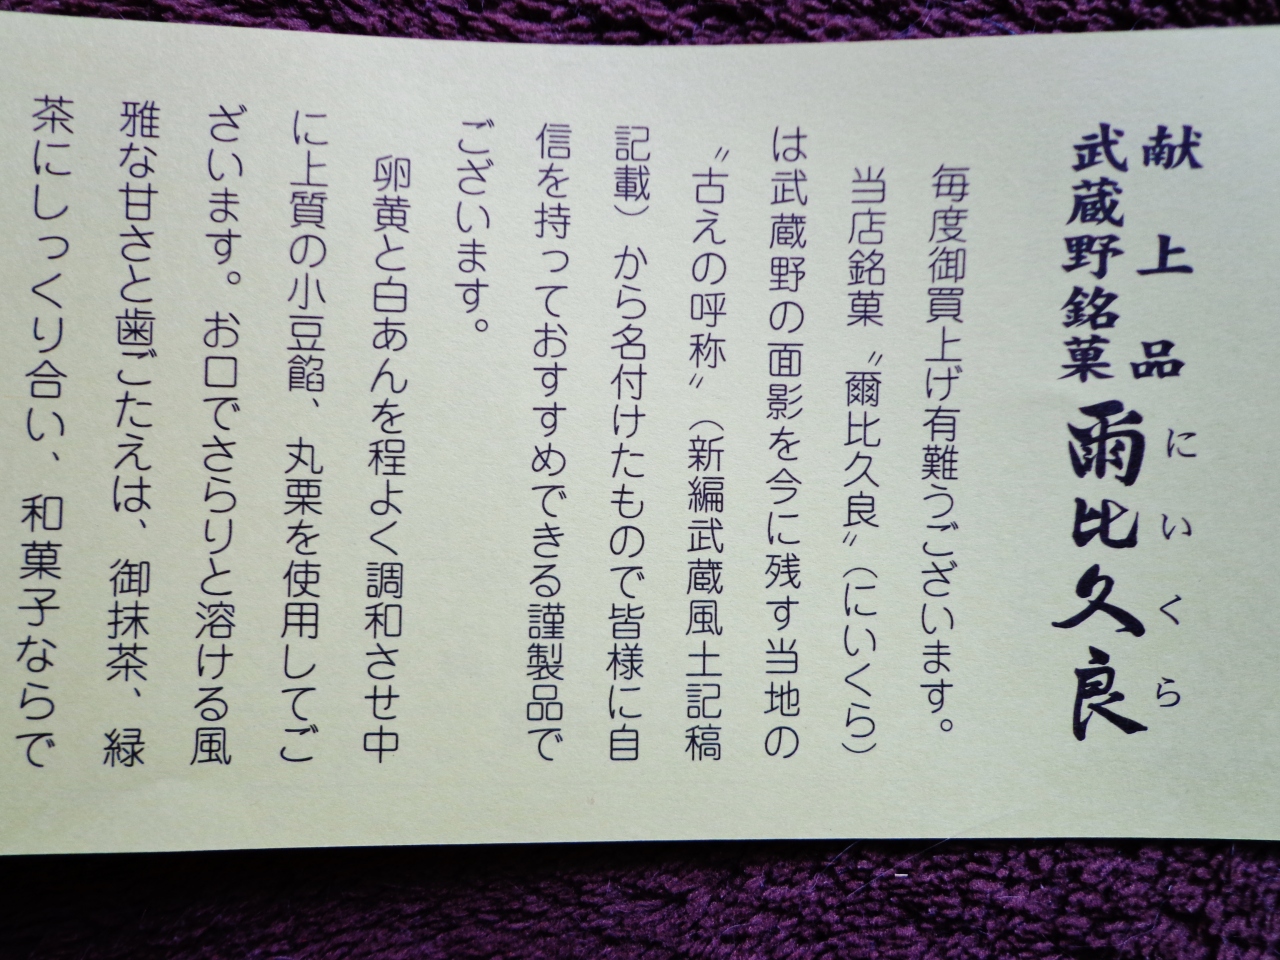 献上品
武蔵野銘菓 爾比久良
にいくら
毎度御買上げ有難うございます。
当店銘菓〝爾比久良〟（にいくら）
は武蔵野の面影を今に残す当地の
〝古えの呼称〟（新編武蔵風土記稿
記載）から名付けたもので皆様に自
信を持っておすすめできる謹製品で
ございます。
卵黄と白あんを程よく調和させ中
に上質の小豆餡、丸栗を使用してご
ざいます。お口でさらりと溶ける風
雅な甘さと歯ごたえは、御抹茶、緑
茶にしっくり合い、和菓子ならで